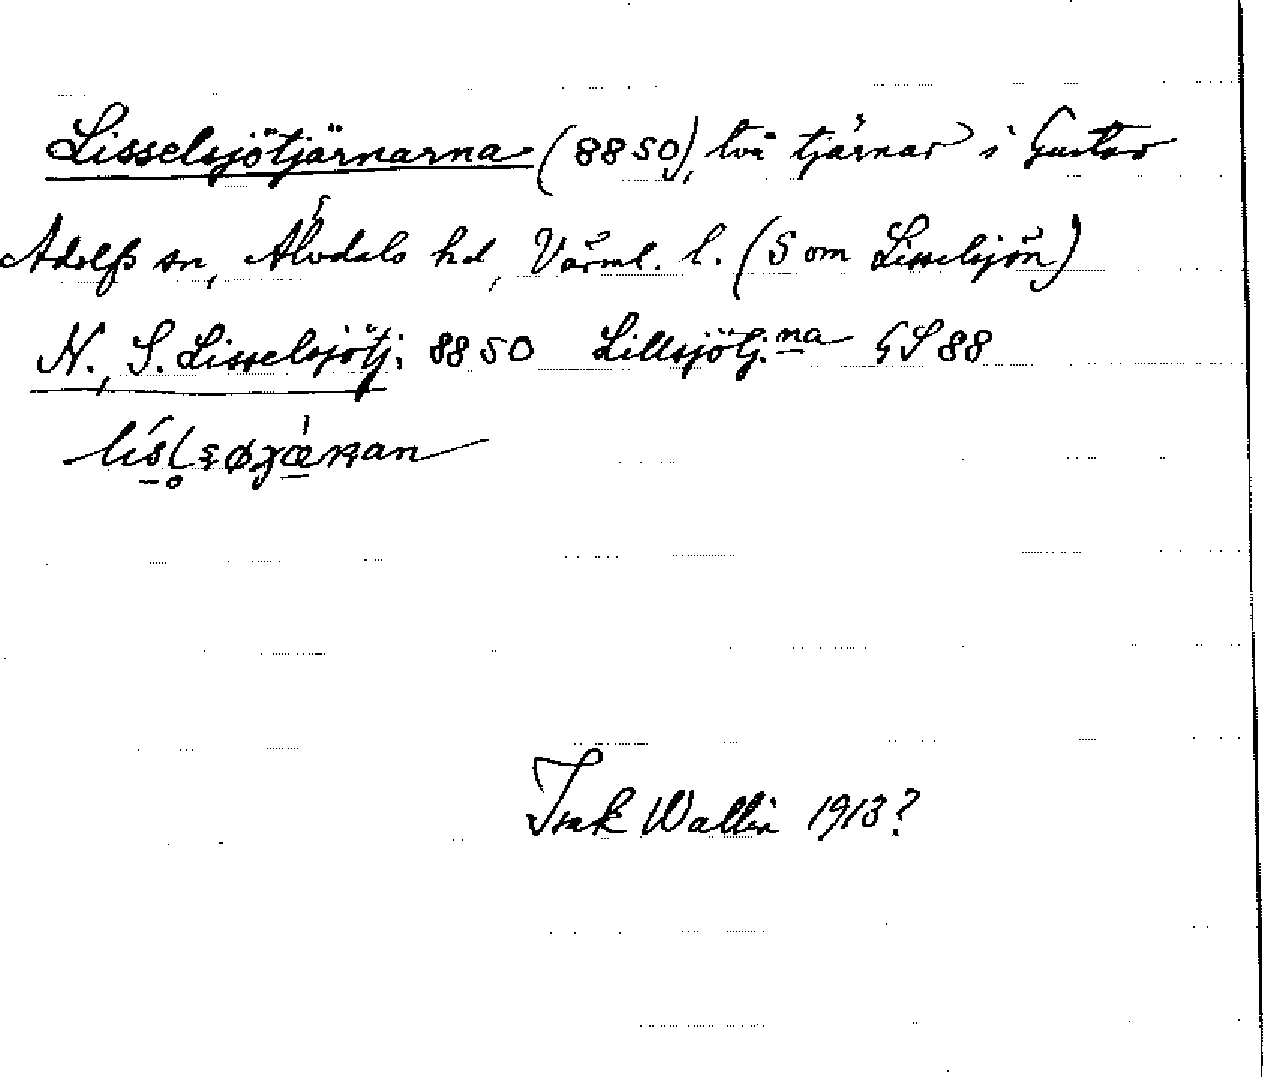 Lisselsjötjärnarna (8850), två tjärnar i Gustav
Adolfs sn, Älvdals hd, Värml. l. (S om Lisselsjön)
N., S. Lisselsjötj. 8850 Lillsjötj.na GS 88
Isak Wallin 1913?